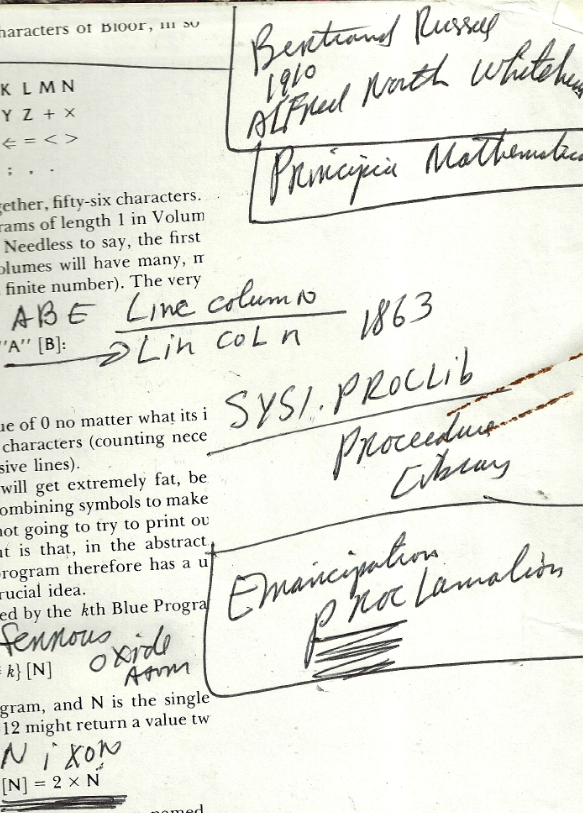 haracters of Bloor, in so
Bertrand Russell
1910
Alfred North Whitehea
K L M N
Y Z + ×
⇐ = < >
; , .
Principia Mathematica
gether, fifty-six characters.
rams of length 1 in Volum
Needless to say, the first
olumes will have many, m
finite number). The very
ABE Line column
"A" [B]: LincoLn 1863
SYS1.PROCLib
ue of 0 no matter what its i
characters (counting nece
sive lines).
Proceedure
Library
will get extremely fat, be
ombining symbols to make
not going to try to print ou
nt is that, in the abstract
rogram therefore has a u
rucial idea.
Emancipation
PROCLamation
ed by the kth Blue Progra
ferrous
oxide
Atom
= k} [N]
gram, and N is the single
12 might return a value tw
N i XON
[N] = 2 × N
named